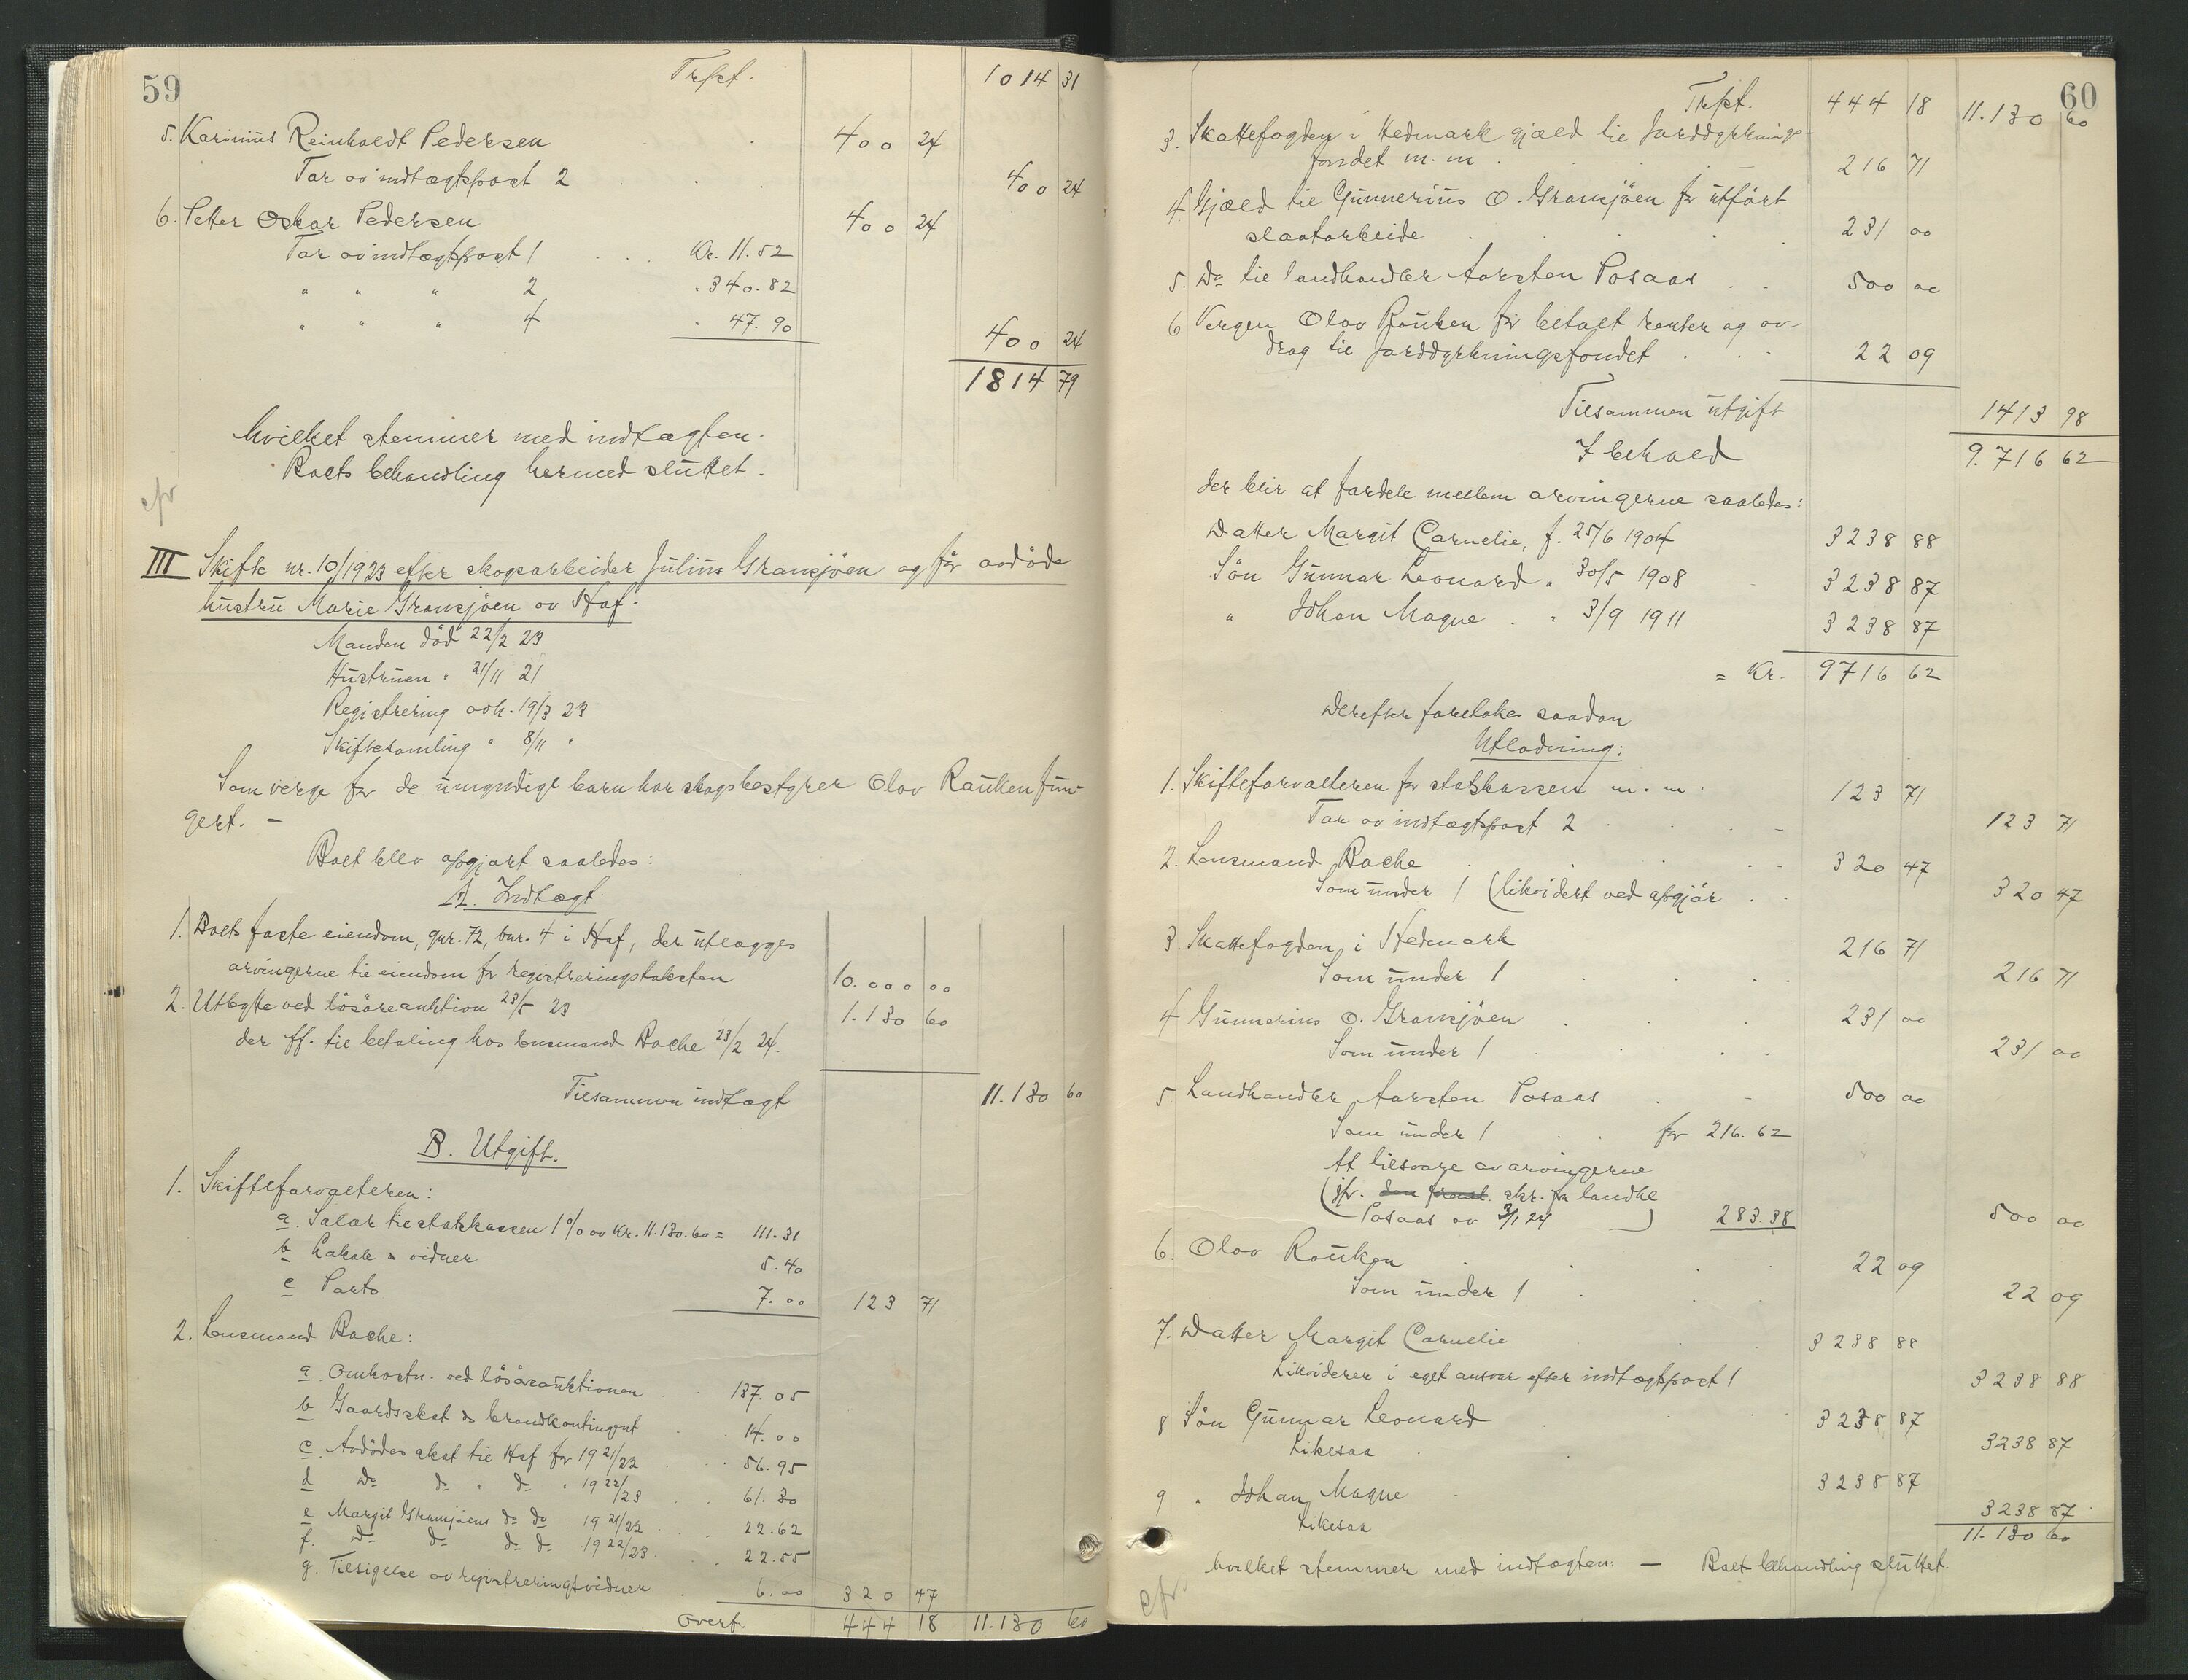 59
Trspt. 1014 31
5. Karinius Reinholdt Pedersen 400 24
Tar av indtægtspost 2 400 24
6. Petter Oskar Pedersen 400 24
Tar av indtægtspost 1 Kr. 11.52
" " " 2 " 340.82
" " " 4 " 47.90
400 24
1814 79
hvilket stemmer med indtægten.
Boets behandling hermed sluttet.
III Skifte nr. 10/1923 efter skogsarbeider Julius Gransjöen og för avdöde
hustru Marie Gransjöen av Hof.
Manden död 22/2 23
Hustruen " 21/11 21
Registrering avh. 19/3 23
Skiftesamling " 8/11 "
Som verge for de umyndige barn har skogsbestyrer Olav Rauken fun-
gert. —
Boet blev opgjort saaledes:
A. Indtægt.
1. Boets faste eiendom, gnr. 72, bnr. 4 i Hof, der utlægges
arvingerne til eiendom for registreringstaksten 10.000 00
2. Utbytte ved lösöreauktion 23/5 23 1.130 60
der ff. til betaling hos lensmand Bache 23/2 24.
Tilsammen indtægt 11.130 60
B. Utgift.
1. Skifteforvalteren:
a. Salær til statskassen 1% av Kr. 11.130.60 = 111.31
b Lokale & vidner 5.40
c Porto 7.00 123 71
2. Lensmand Bache:
a. Omkostn. ved lösöreauktionen 137.05
b Gaardsskat & brandkontingent 14.00
c. Avdödes skat til Hof for 1921/22 56.95
d Do do " do " 1922/23 61.30
e Margit Gransjöens do do 1921/22 22.62
f. Do do do do 1922/23 22.55
g. Tilsigelse av registreringsvidner 6.00 320 47
Overf. 444 18 11.130 60
60
Trspt. 444 18 11.130 60
3. Skattefogden i Hedmark gjæld til Jorddyrknings-
fondet m.m. 216 71
4. Gjæld til Gunnerius O. Gransjöen for utfört
slaatarbeide 231 00
5. Do til landhandler Torsten Posaas 500 00
6 Vergen Olav Rauken for betalt renter og av-
drag til Jorddyrkningsfondet 22 09
Tilsammen utgift 1413 98
I behold 9.716 62
der blir at fordele mellem arvingerne saaledes:
Datter Margit Cornelie, f. 25/6 1904 3238 88
Sön Gunnar Leonard " 30/5 1908 3238 87
" Johan Magne " 3/9 1911 3238 87
= Kr. 9716 62
Derefter foretokes saadan
Utlodning:
1. Skifteforvalteren for statskassen m.m. 123 71
Tar av indtægtspost 2 123 71
2. Lensmand Bache 320 47
Som under 1 (likvidert ved opgjör 320 47
3. Skattefogden i Hedmark 216 71
Som under 1 216 71
4 Gunnerius O. Gransjöen 231 00
Som under 1 231 00
5. Landhandler Torsten Posaas 500 00
Som under 1 for 216.62
At tilsvare av arvingerne
(jfr. skr. fra landhl
Posaas av 3/1 24) 283.38 500 00
6. Olav Rauken 22 09
Som under 1 22 09
7. Datter Margit Cornelie 3238 88
Likviderer i eget ansvar efter indtægtspost 1 3238 88
8 Sön Gunnar Leonard 3238 87
Likesaa 3238 87
9 " Johan Magne 3238 87
Likesaa 3238 87
11.130 60
hvilket stemmer med indtægten: — Boets behandling sluttet.